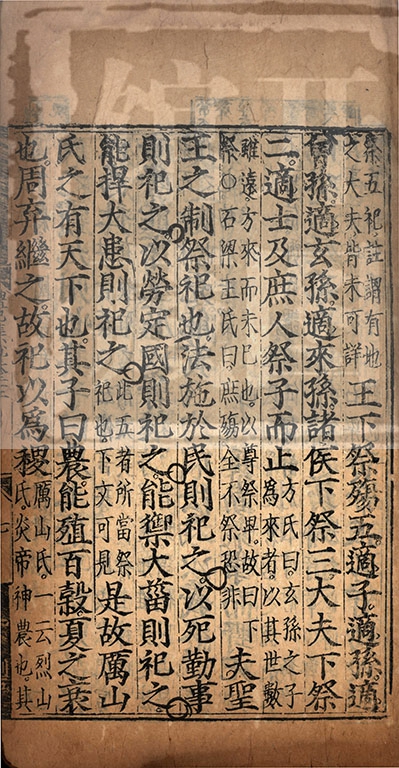 祭五祀註謂有地
之大夫皆未可詳
王下祭殤五。適子。適孫。適
曾孫。適玄孫。適來孫。諸侯下祭三。大夫下祭
二。適士及庶人祭子而止
方氏曰。玄孫之子
為來者。以其世數
雖遠。方來而未已也。以尊祭卑。故曰下
祭○石梁王氏曰。庶殤全不祭。恐非
夫聖
王之制祭祀也。法施於民則祀之。以死勤事
則祀之。以勞定國則祀之。能禦大菑則祀之。
能捍大患則祀之。
此五者所當祭
祀也。下文可見
是故厲山
氏之有天下也。其子曰農。能殖百穀。夏之衰
也。周弃繼之。故祀以為稷
厲山氏。一云烈山
氏。炎帝神農也。其